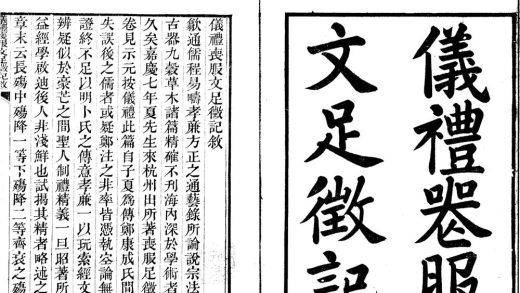 儀禮喪服
文足徵記
儀禮喪服文足徵記敘
歙通儒程易疇孝廉方正之通藝錄所論說宗法
古器九穀草木諸篇精確不刊海內深於學術者
久矣嘉慶七年夏先生來杭州出所著喪服足徵
卷見示元按儀禮此篇自子夏爲傳鄭康成氏間
失誤後之儒者或疑鄭注之非率皆憑執空論無
證終不足以明卜氏之傳意孝廉一以玩索經文
辨疑似於豪芒之間聖人制禮精義一旦昭著所
益經學啟迪後人非淺鮮也試揭其精者略述之
章末云長殤中殤降一等下殤降二等齊衰之殤